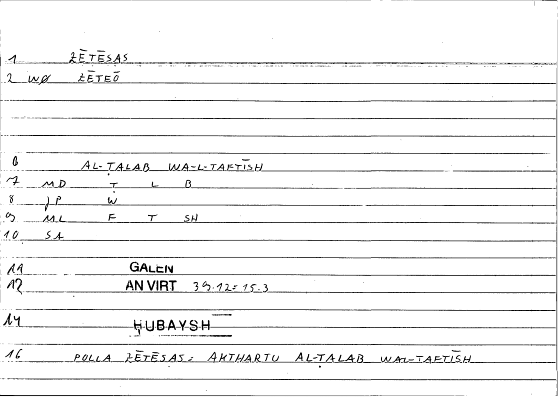 1 ŻĒTĒSAS
2 WØ ŻĒTEŌ
6 AL-ṬALAB WA-L-TAFTĪSH
7 MD Ṭ L B
8 JP W
9 ML F T SH
10 SA
11 GALEN
12 AN VIRT 39.12=15.3
14 ḤUBAYSH
16 POLLA ŻĒTĒSAS= AKTHARTU AL-ṬALAB WAL-TAFTĪSH